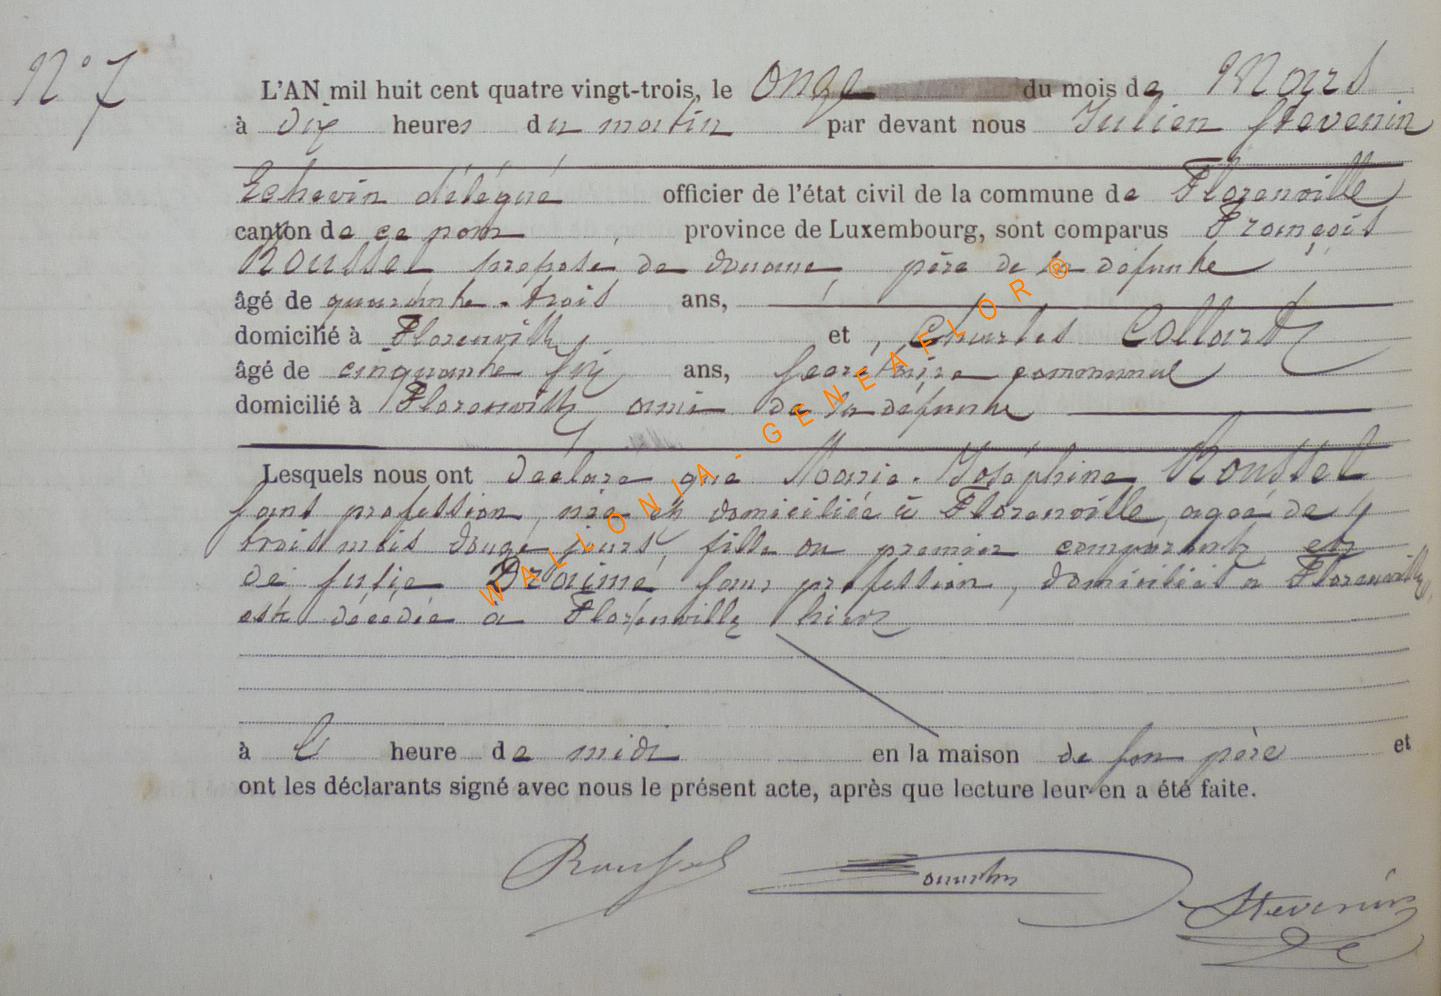 N° 7
L'AN mil huit cent quatre vingt-trois, le onze du mois de Mars
à dix heures du matin par devant nous Julien Stevenin
Echevin délégué officier de l'état civil de la commune de Florenville
canton de ce nom province de Luxembourg, sont comparus François
Roussel préposé de douane père de la défunte
âgé de quarante-trois ans,
domicilié à Florenville et Charles Collard
âgé de cinquante six ans, secrétaire communal
domicilié à Florenville ami de la défunte
Lesquels nous ont déclaré que Marie-Joséphine Roussel
sans profession, née et domiciliée à Florenville, agée de
trois mois douze jours, fille du premier comparant, et
de sans profession, domiciliés à Florenville,
est décédée à Florenville hier
à heure de midi en la maison de son père et
ont les déclarants signé avec nous le présent acte, après que lecture leur en a été faite.
Roussel Stevenin
WALLONIA - GENEAFLOR®